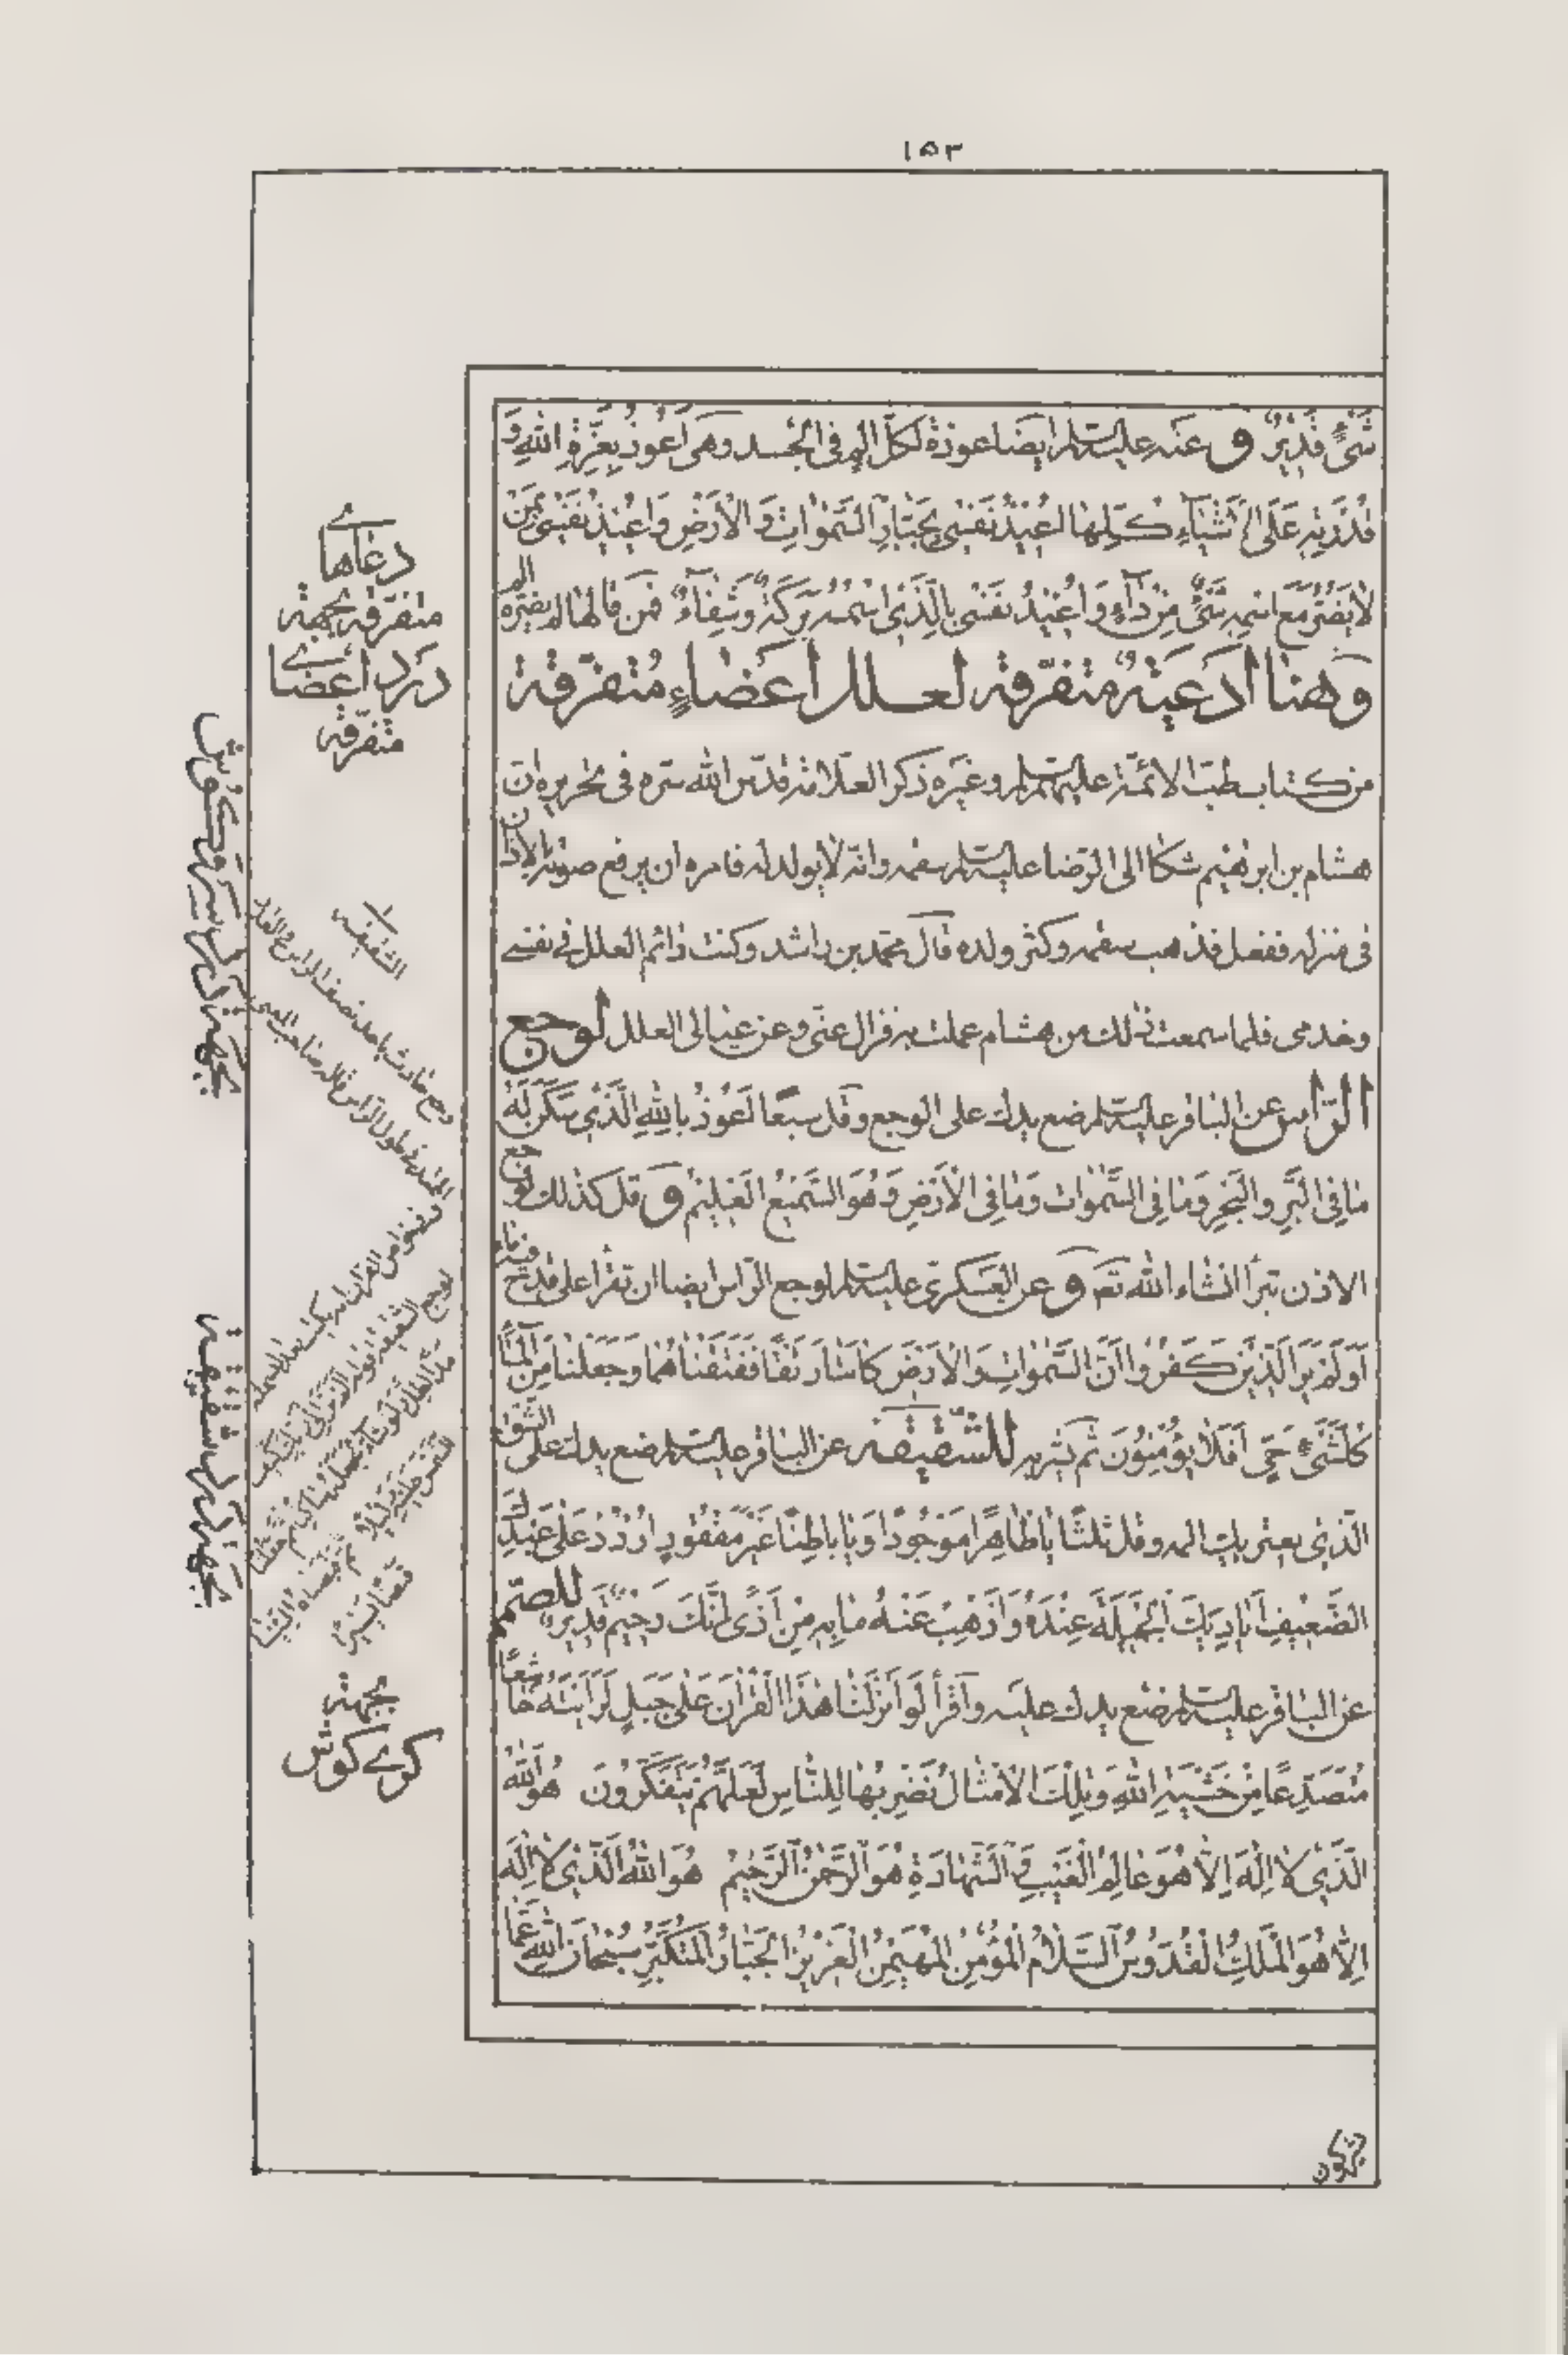 ١٥٣
شَيْءٍ قَدِيرٌ و عنه عليه السلم ايضا عوذة لكل الم فى الجسد وهى اَعُوذُ بِعِزَّةِ اللهِ وَ
قُدْرَتِهِ عَلَى الْاَشْيَاءِ كُلِّهَا اُعِيذُ نَفْسِي بِجَبَّارِ السَّمٰوَاتِ وَ الْاَرْضِ وَ اُعِيذُ نَفْسِي بِمَنْ
لَا يَضُرُّ مَعَ اسْمِهِ شَيْءٌ مِنْ دَاءٍ وَ اُعِيذُ نَفْسِي بِالَّذِي اسْمُهُ بَرَكَةٌ وَ شِفَاءٌ فمن قالها لم يضره الم
وَهنا اَدعيَة متفرّقة لعلل اَعضاءٍ مُتفرّقة
من كتاب طبّ الائمّة عليهم السلم وغيره ذكر العلامة قدّس الله سره فى تحريره ان
هشام بن ابرهيم شكا الى الرضا عليه السلم سقمه وانه لا يولد له فامره ان يرفع صوته بالاذان
فى منزله ففعل فذهب سقمه وكثر ولده قال محمد بن راشد وكنت دائم العلل فى نفسى
وخدمى فلما سمعت ذلك من هشام عملت به فزال عنى وعن عيالى العلل لوجع
الرّاس عن الباقر عليه السلم ضع يدك على الوجع وقل سبعا اَعُوذُ بِاللهِ الَّذِي سَكَنَ لَهُ
مَا فِي الْبَرِّ وَ الْبَحْرِ وَ مَا فِي السَّمٰوَات وَ مَا فِي الْاَرْضِ وَ هُوَ السَّمِيعُ الْعَلِيمُ و قل كذلك لوجع
الاذن تبرأ انشاء الله تعَ و عن العسكرى عليه السلم لوجع الراس ايضا ان تقرأ على قدح فيه ماء
اَوَلَمْ يَرَ الَّذِينَ كَفَرُوا اَنَّ السَّمٰوَاتِ وَ الْاَرْضَ كَانَتَا رَتْقًا فَفَتَقْنَاهُمَا وَ جَعَلْنَا مِنَ الْمَاءِ
كُلَّ شَيْءٍ حَيٍّ اَفَلَا يُؤْمِنُونَ ثم يشربه للشّقيقه عن الباقر عليه السلم ضع يدك على الشق
الّذى يعتريك المه وقل ثلثا يَا ظَاهِرًا مَوْجُودًا وَ يَا بَاطِنًا غَيْرَ مَفْقُودٍ اُرْدُدْ عَلَى عَبْدِكَ
الضَّعِيفِ اَيَادِيَكَ الْجَمِيلَةَ عِنْدَهُ وَ اَذْهِبْ عَنْهُ مَا بِهِ مِنْ اَذًى اِنَّكَ رَحِيمٌ قَدِيرٌ للصّمم
عن الباقر عليه السلم ضع يدك عليه واقرأ لَوْ اَنْزَلْنَا هٰذَا الْقُرْاٰنَ عَلَى جَبَلٍ لَرَاَيْتَهُ خَاشِعًا
مُتَصَدِّعًا مِنْ خَشْيَةِ اللهِ وَ تِلْكَ الْاَمْثَالُ نَضْرِبُهَا لِلنَّاسِ لَعَلَّهُمْ يَتَفَكَّرُونَ هُوَ اللهُ
الَّذِي لَا اِلٰهَ اِلَّا هُوَ عَالِمُ الْغَيْبِ وَ الشَّهَادَةِ هُوَ الرَّحْمٰنُ الرَّحِيمُ هُوَ اللهُ الَّذِي لَا اِلٰهَ
اِلَّا هُوَ الْمَلِكُ الْقُدُّوسُ السَّلَامُ الْمُؤْمِنُ الْمُهَيْمِنُ الْعَزِيزُ الْجَبَّارُ الْمُتَكَبِّرُ سُبْحَانَ اللهِ عَمَّا
دعاهاے
متفرّقه بجهة
درد اعضاے
متفرّقه
بجهة درد سر و گوش
الشقيقه
وجع
بجهة درد شقيقه
بجهة
كرے گوش
يشركون